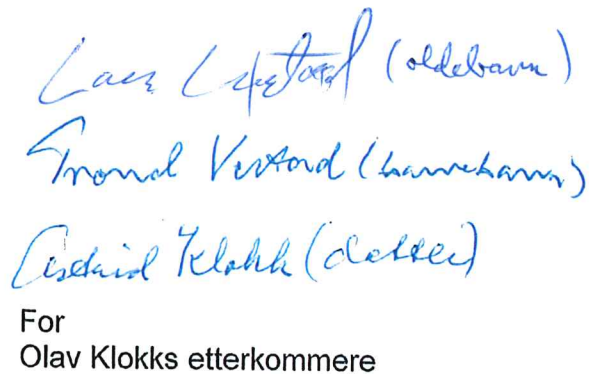 (oldebarn)
Trond Vestad (barnebarn)
Astrid Klokk (datter)
For
Olav Klokks etterkommere